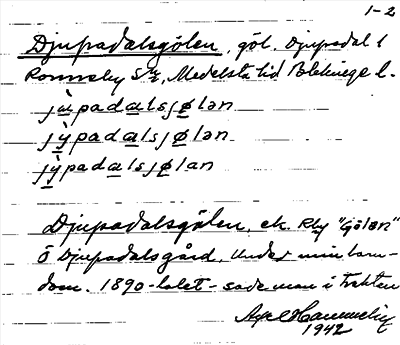 1-2
Djupadalsgölen, göl. Djupadal i
Ronneby sn, Medelsta hd Blekinge l.
jùpadalsjølən
jỳpadalsjølən
jỳpadalsjølan
Djupadalsgölen, ek. Rby "Gölen"
Ö Djupadalsgård. Under min barn-
dom. 1890-talet - sade man i trakten
Axel
1942